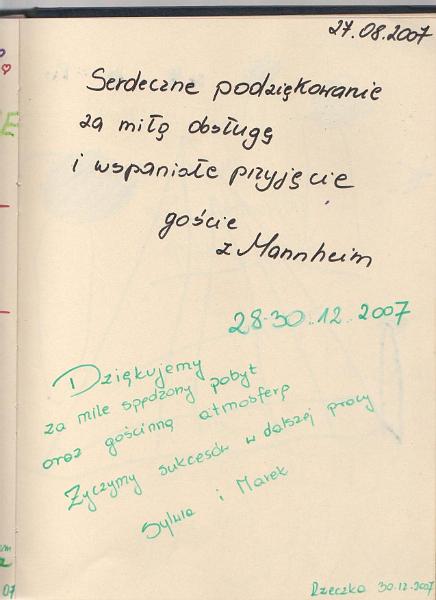 27.08.2007
Serdeczne podziękowanie
za miłą obsługę
i wspaniałe przyjęcie
goście
z Mannheim
28-30.12.2007
Dziękujemy
za mile spędzony pobyt
oraz gościnną atmosferę
Życzymy sukcesów w dalszej pracy
Sylwia i Marek
Rzeczka 30.12.2007
E
07